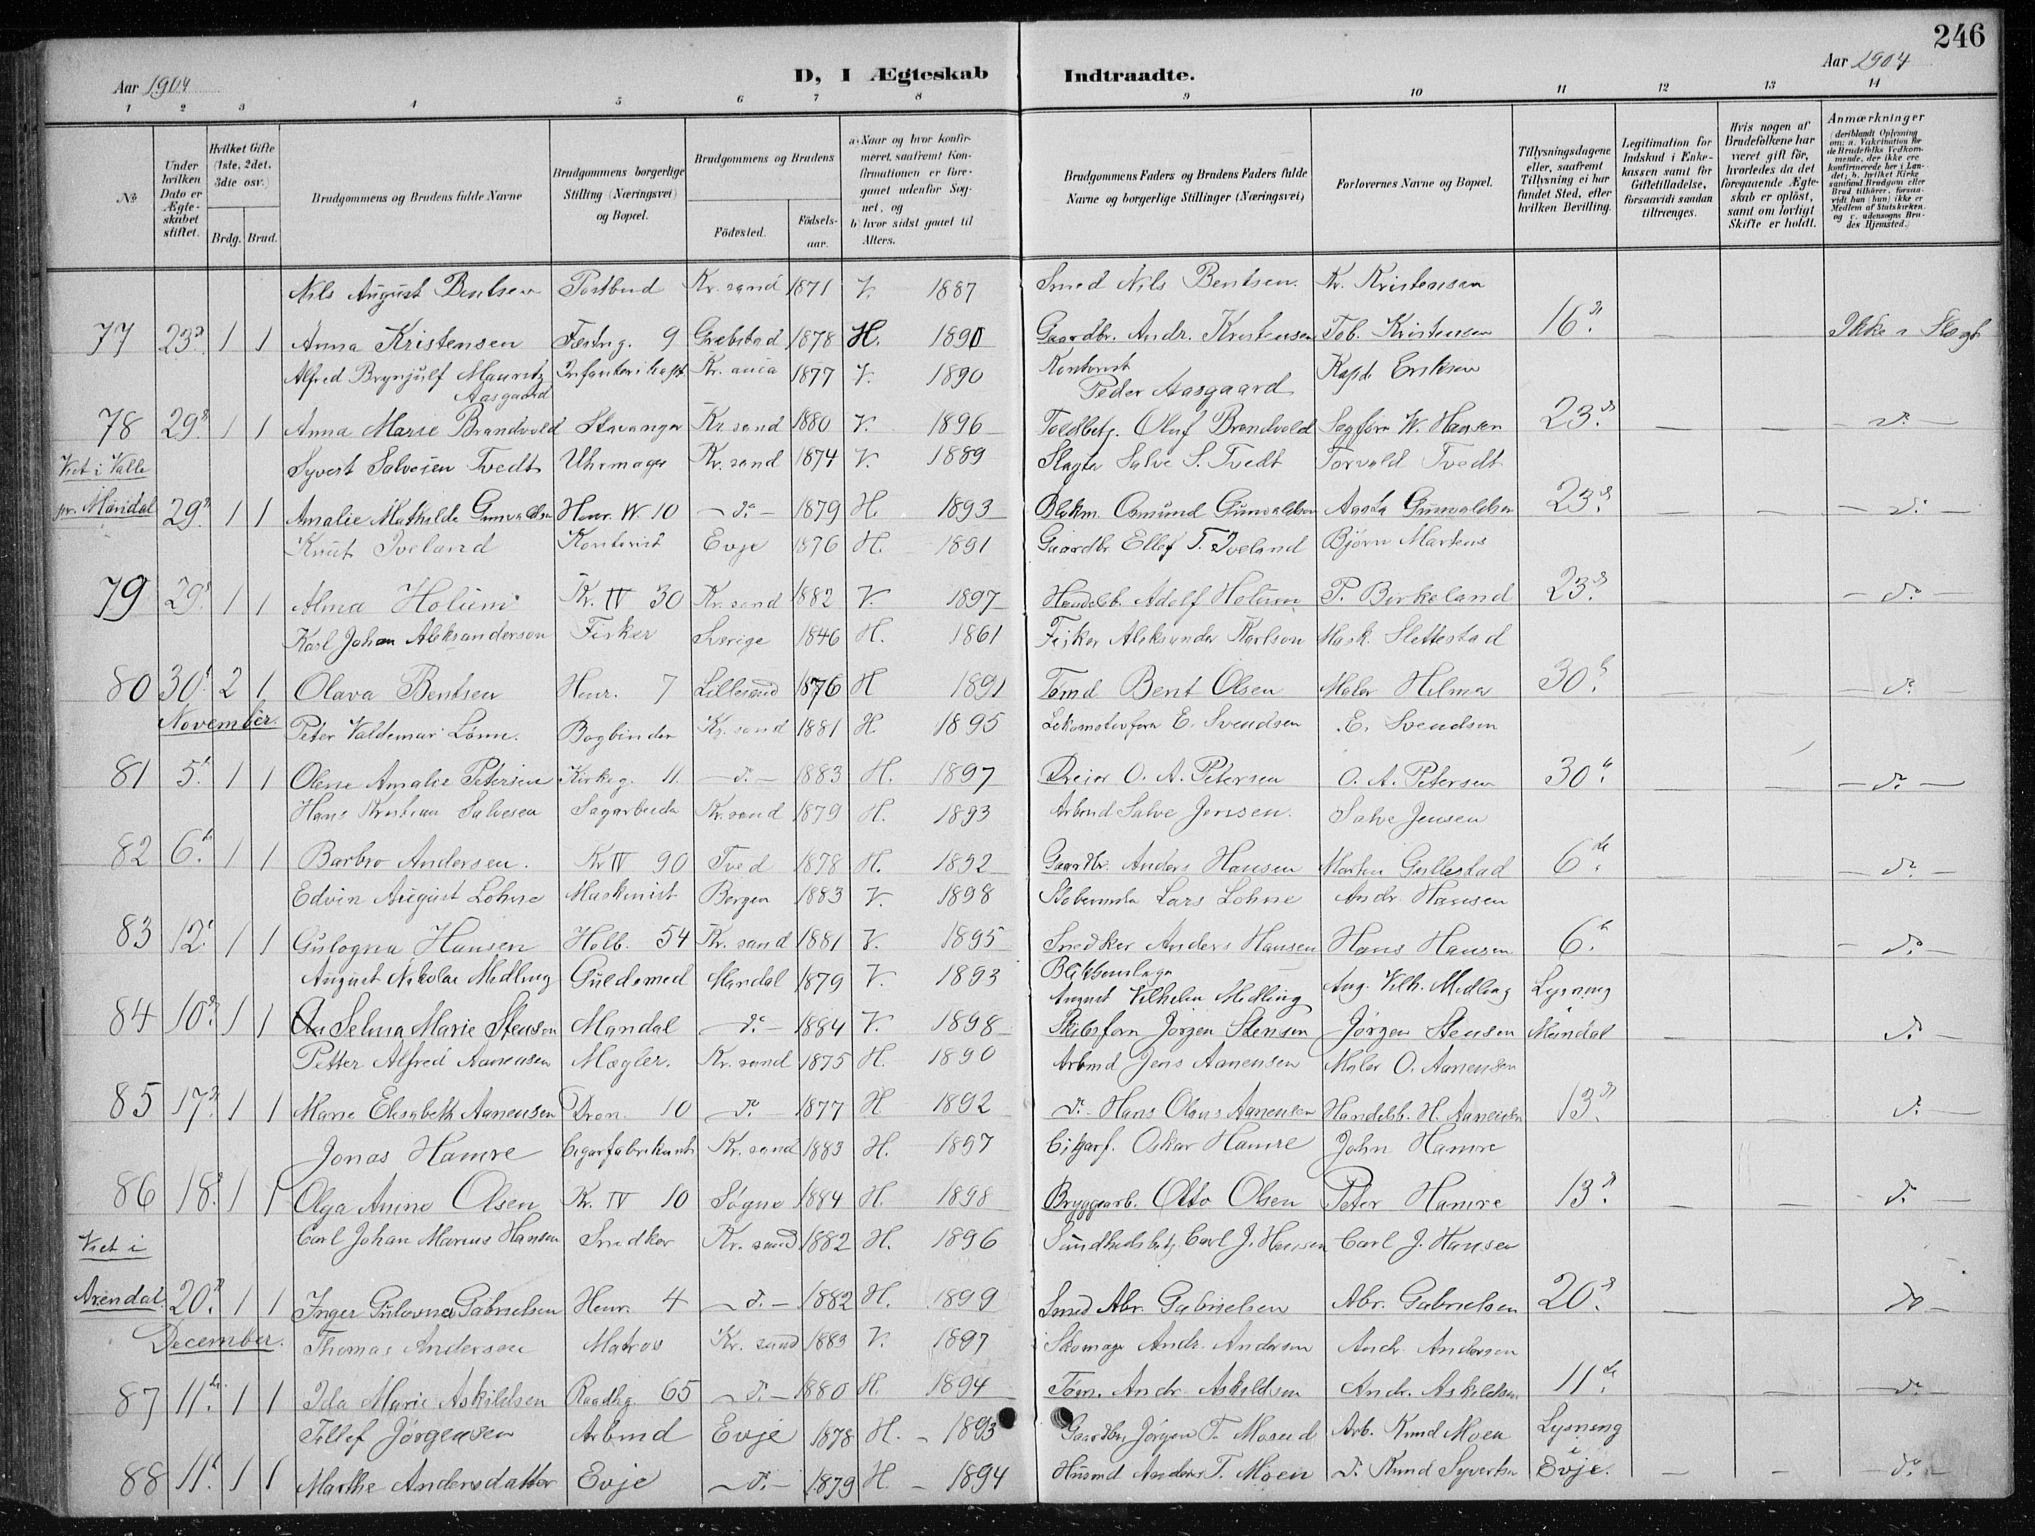 246
Aar 1904
D, I Ægteskab Indtraadte.
Aar 1904
1 2 3 4 5 6 7 8 9 10 11 12 13 14
No.
Under hvilken Dato er Ægteskabet stiftet.
Hvilket Gifte (1ste, 2det, 3die osv.)
Brdg. Brud.
Brudgommens og Brudens fulde Navne
Brudgommens borgerlige Stilling (Næringsvei) og Bopæl.
Brudgommens og Brudens
Fødested. Fødselsaar.
a) Naar og hvor konfirmeret, saafremt Konfirmationen er foregaaet udenfor Sognet, og
b) hvor sidst gaaet til Alters.
Brudgommens Faders og Brudens Faders fulde Navne og borgerlige Stillinger (Næringsvei)
Forlovernes Navne og Bopæl.
Tillysningsdagene eller, saafremt Tillysning ei har fundet Sted, efter hvilken Bevilling.
Legitimation for Indskud i Enkekassen samt for Giftetilladelse, forsaavidt saadan tiltrænges.
Hvis nogen af Brudefolkene har været gift før, hvorledes da det foregaaende Ægteskab er opløst, samt om lovligt Skifte er holdt.
Anmærkninger
Nils August Bentsen Postbud Kr. sand 1871 V. 1887 Smed Nils Bentsen. Kr. Kristensen
77 23d 1 1 Anna Kristensen Festng. 9 Græbstad 1878 H. 1891 Gaardbr. Andr. Kristensen Tob. Kristensen 16d — — Ikke i Slægt
Alfred Brynjulf Mauritz Aasgaard Infanterikapt. Kr. ania 1877 V. 1890 Kontorist Peder Aasgaard Kapt. Eriksen
78 29d 1 1 Anna Marie Brandvold Stavanger Kr. sand 1880 V. 1896 Toldbetj. Oluf Brandvold Sagfører W. Hansen 23d — — do
Viet i Valle Syvert Salvesen Tvedt Uhrmager Kr. sand 1874 V. 1889 Slagter Salve S. Tvedt Torvald Tvedt
pr. Mandal 29d 1 1 Amalie Mathilde Gunvaldsen Henr. W. 10 do 1879 H. 1893 Blokm. Osmund Gunvaldsen Aasta Gunvaldsen 23d — — do
Knut Iveland Kontorist Evje 1876 H. 1891 Gaardbr Ellef T. Iveland Bjørn Martens
79 29d 1 1 Alma Holum Kr. IV 30 Kr. sand 1882 V. 1897 Handelsb. Adolf Holum P. Birkeland 23d — — do
Karl Johan Aleksanderson Fisker Sverige 1846 H. 1861 Fisker Aleksander Karlson Mask. Slettestad
80 30t 2 1 Olava Bentsen Henr. 7 Lillesand 1876 H 1891 Tømd Bent Olsen Maler Hilmer 30t — — do
November.
Peter Valdemar Lønn. Bogbinder Kr. sand 1881 H 1895 Lokomotivfører E. Svendsen E. Svendsen
81 5t 1 1 Olene Amalie Petersen Kirkeg. 11. do 1883 H. 1897 Dreier O. A. Petersen O. A. Petersen 30t — — do
Hans Kristian Salvesen Sagarbeider Kr. sand 1879 H. 1893 Arbmd Salve Jensen. Salve Jensen
82 6t 1 1 Barbro Andersen. Kr IV 90 Tved 1878 H. 1892 Gaardbr. Anders Hansen Marten Gullestad 6te — — do
Edvin August Lohne Maskinist Bergen 1883 V. 1898 Støbermester Lars Lohne Andr. Hansen
83 12t 1 1 Gulogna Hansen Holb. 54 Kr. sand 1881 V. 1895 Snedker Anders Hansen Hans Hansen 6t — — do
August Nikolai Midling Guldsmed Mandal 1879 V. 1893 Blikkenslager August Vilhelm Midling Aug. Vilh. Midling Lysning
84 10d 1 1 Selma Marie Stensen Mandal do 1884 V. 1898 Skibsfører Jørgen Stensen Jørgen Stensen i Mandal — — do
Petter Alfred Aanensen Mægler. Kr. sand 1875 H. 1890 Arbmd Jens Aanensen Maler O. Aanensen
85 17d 1 1 Marie Elisabeth Aanensen Dron. 10 do 1877 H 1892 do Hans Olaus Aanensen Handelsb. H. Aanensen 13d — — do
Jonas Hamre Cigarfabrikant Kr. sand 1883 H. 1897 Cigarf. Oskar Hamre John Hamre
86 18d 1 1 Olga Amine Olsen Kr. IV 10 Søgne 1884 H. 1898 Bryggearb. Otto Olsen Peter Hamre 13d — — do
Viet i Carl Johan Marius Hansen Snedker Kr. sand 1882 H. 1896 Sundhedsbetj. Carl J. Hansen Carl J. Hansen
Arendal. 20d 1 1 Inger Gulovna Gabrielsen Henr. 4 do 1882 H. 1899 Smed Abr. Gabrielsen Abr. Gabrielsen 20d — — do
December.
Thomas Andersen Matros Kr. sand 1883 V. 1897 Skomager Andr. Andersen Andr. Andersen
87 11te 1 1 Ida Marie Askildsen Raadhg. 65 do 1880 H. 1894 Tøm. Andr. Askildsen Andr. Askildsen 11te — — do
Tellef Jørgensen Arbmd Evje 1878 H. 1893 Gaardbr. Jørgen T. Mosud Arb. Knud Moen Lysning
88 11t 1 1 Marthe Andersdatter Evje do 1879 H. 1894 Husmd Anders T. Moen do Knud Syvertsen i Evje. — — do